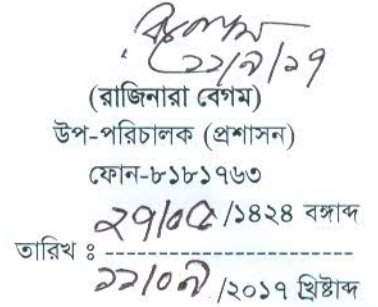 ১১/৯/১৭
(রাজিনারা বেগম)
উপ-পরিচালক (প্রশাসন)
ফোন-৮১৮১৭৬৩
২৭/০৫/১৪২৪ বঙ্গাব্দ
তারিখ ঃ
১১/০৯/২০১৭ খ্রিষ্টাব্দ